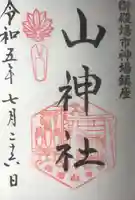 御殿場市神場鎮座
山神社
令和五年
七月二十六日